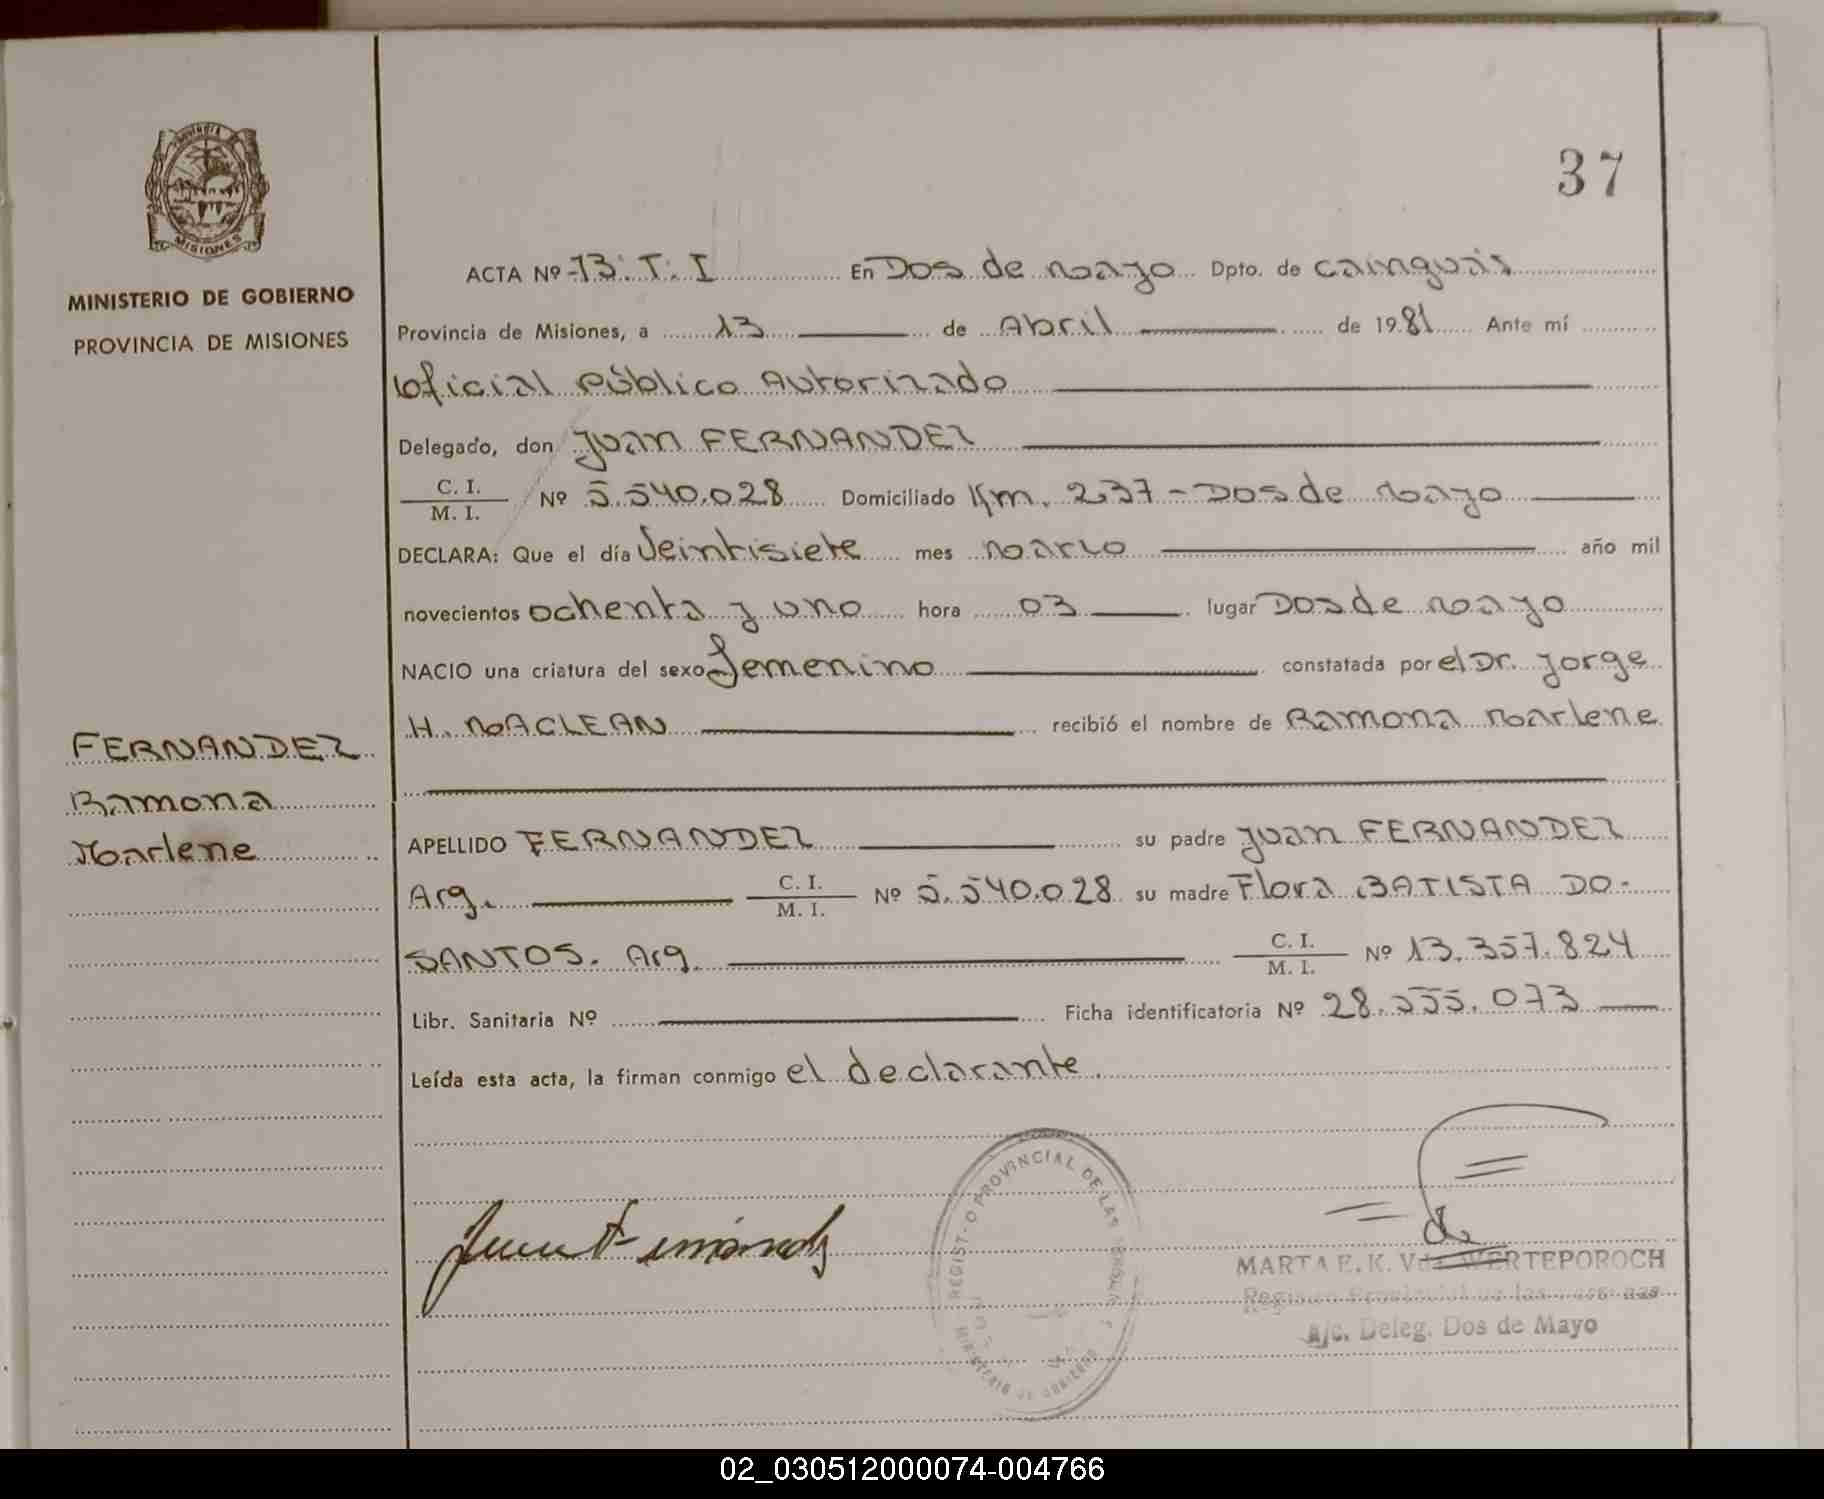 37
MISIONES
MINISTERIO DE GOBIERNO
PROVINCIA DE MISIONES
ACTA Nº 73. T. I En Dos de Mayo Dpto. de Cainguás
Provincia de Misiones, a 13 de Abril de 1981 Ante mí
Oficial Público Autorizado
Delegado, don Juan FERNANDEZ
C. I.
M. I. Nº 5.540.028 Domiciliado Km. 237 - Dos de Mayo
DECLARA: Que el día Veintisiete mes Marzo año mil
novecientos ochenta y uno hora 03 lugar Dos de Mayo
NACIO una criatura del sexo Femenino constatada por el Dr. Jorge
H. MACLEAN recibió el nombre de Ramona Marlene
FERNANDEZ
Ramona
Marlene
APELLIDO FERNANDEZ su padre Juan FERNANDEZ
Arg. C. I.
M. I. Nº 5.540.028 su madre Flora BATISTA DO-
SANTOS. Arg. C. I.
M. I. Nº 13.357.824
Libr. Sanitaria Nº Ficha identificatoria Nº 28.555.073
Leída esta acta, la firman conmigo el declarante.
REGISTRO PROVINCIAL DE LAS PERSONAS
MINISTERIO DE GOBIERNO
Juan Fernández
MARTA E. K. Vda. WERTEPOROCH
Registro Provincial de las Personas
a/c. Deleg. Dos de Mayo
02_030512000074-004766